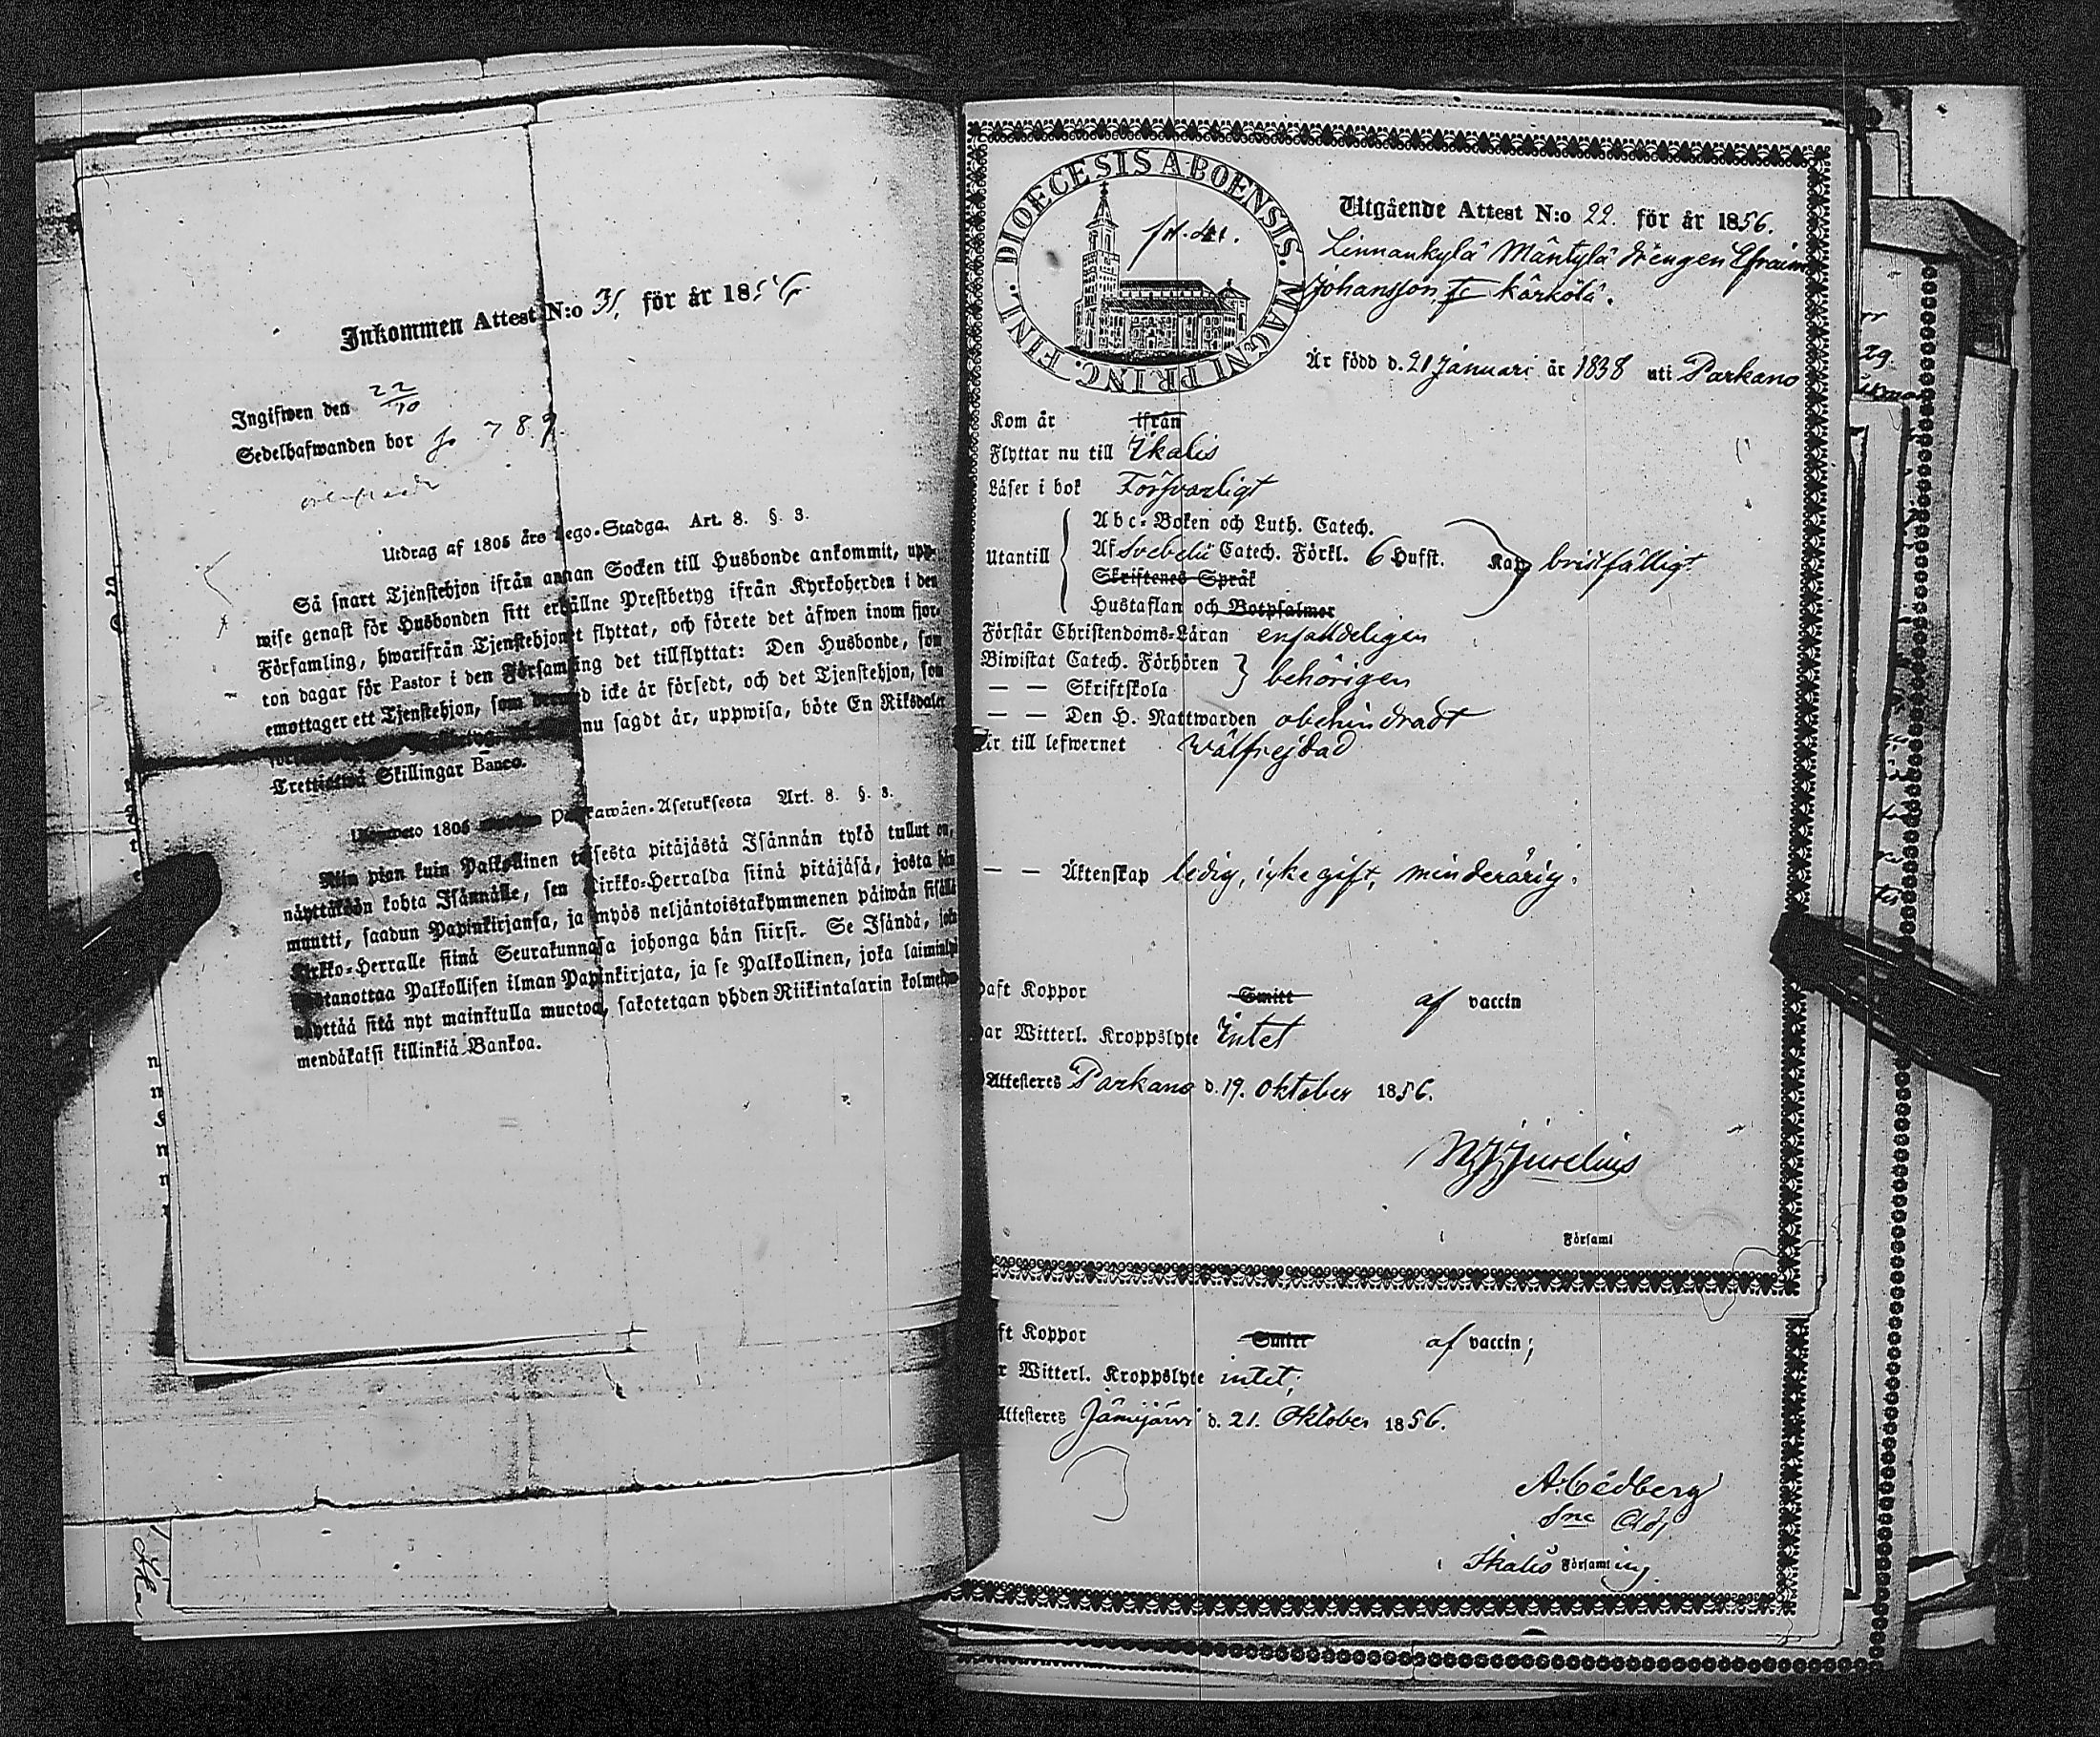 Inkommen Attest N:o 31, för år 1856.
Ingifwen den 22/10
Sedelhafwanden bor fo 789
Utdrag af 1805 års Lego-Stadga. Art. 8. §. 3.
Så snart Tjenstehjon ifrån annan Socken till Husbonde ankommit, upp-
wise genast för Husbonden sitt erhållne Prestbetyg ifrån Kyrkoherden i den
Församling, hwarifrån Tjenstehjonet flyttat, och förete det äfwen inom fjor-
ton dagar för Pastor i den Församling det tillflyttat: Den Husbonde, som
emottager ett Tjenstehjon, som dermed icke är försedt, och det Tjenstehjon, som
nu sagdt är, uppwisa, böte En Riksdaler
Trettiotwå Skillingar Banco.
1805 Palkawäen-Asetuksesta Art. 8. §. 3.
Niin pian kuin Palkollinen toisesta pitäjästä Isännän tykö tullut on,
näyttäköön kohta Isännälle, sen Kirkko-Herralda siinä pitäjäsä, josta hän
muutti, saadun Papinkirjansa, ja myös neljäntoistakymmenen päiwän sisällä
Kirkko-Herralle siinä Seurakunnasa johonga hän siirsi. Se Isändä, joka
wastanottaa Palkollisen ilman Papinkirjata, ja se Palkollinen, joka laiminlyö
näyttää sitä nyt mainitulla muotoa, sakotetaan yhden Riikintalarin kolmekym-
mendäkaksi killinkiä Bankoa.
DIOECESIS ABOENSIS. MAGNI PRINC. FINL.
Utgående Attest N:o 22. för år 1856.
Linnankylä Mäntylä drengen Efraim
Johansson Kärkölä.
Är född d. 21 Januari år 1838 uti Parkano
Kom år ifrån
Flyttar nu till Ikalis
Läser i bok Försvarligt
Abc-Boken och Luth. Catech.
Utantill Af Svebelii Catech. Förkl. 6 Hufst. Kan bristfälligt
Skriftenes Språk
Hustaflan och Botpsalmer
Förstår Christendoms-Läran enfaldeligen
Biwistat Catech. Förhören behörigen
— — Skriftskola
— — Den H. Nattwarden obehindradt
Är till lefwernet wälfrejdad
— — Äktenskap ledig, icke gift, minderårig.
haft Koppor Smitt af vaccin
har Witterl. Kroppslyte Intet
Attesteres Parkano d. 19. oktober 1856.
Församl
ft Koppor Smitt af vaccin;
r Witterl. Kroppslyte intet;
Attesteres Jämijärvi d. 21. Oktober 1856.
A. Cedberg
Sne Adj
i Ikalis Församling.